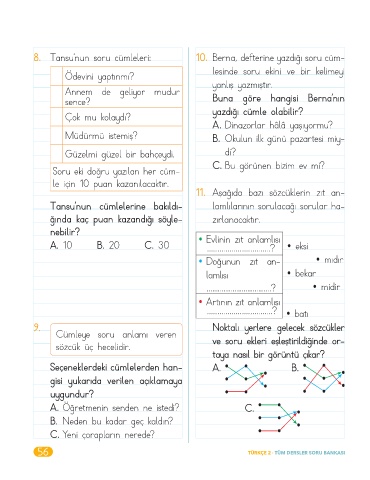 8. Tansu'nun soru cümleleri:
Ödevini yaptınmı?
Annem de geliyor mudur
sence?
Çok mu kolaydı?
Müdürmü istemiş?
Güzelmi güzel bir bahçeydi.
Soru eki doğru yazılan her cüm-
le için 10 puan kazanılacaktır.
Tansu'nun cümlelerine bakıldı-
ğında kaç puan kazandığı söyle-
nebilir?
A. 10 B. 20 C. 30
9. Cümleye soru anlamı veren
sözcük üç hecelidir.
Seçeneklerdeki cümlelerden han-
gisi yukarıda verilen açıklamaya
uygundur?
A. Öğretmenin senden ne istedi?
B. Neden bu kadar geç kaldın?
C. Yeni çorapların nerede?
10. Berna, defterine yazdığı soru cüm-
lesinde soru ekini ve bir kelimeyi
yanlış yazmıştır.
Buna göre hangisi Berna'nın
yazdığı cümle olabilir?
A. Dinazorlar hâlâ yaşıyormu?
B. Okulun ilk günü pazartesi miy-
di?
C. Bu görünen bizim ev mi?
11. Aşağıda bazı sözcüklerin zıt an-
lamlılarının sorulacağı sorular ha-
zırlanacaktır.
• Evlinin zıt anlamlısı
..............................?
• Doğunun zıt an-
lamlısı
..............................?
• Artının zıt anlamlısı
..............................?
• eksi
• mıdır
• bekar
• midir
• batı
Noktalı yerlere gelecek sözcükler
ve soru ekleri eşleştirildiğinde or-
taya nasıl bir görüntü çıkar?
A. B.
C.
56 TÜRKÇE 2 - TÜM DERSLER SORU BANKASI